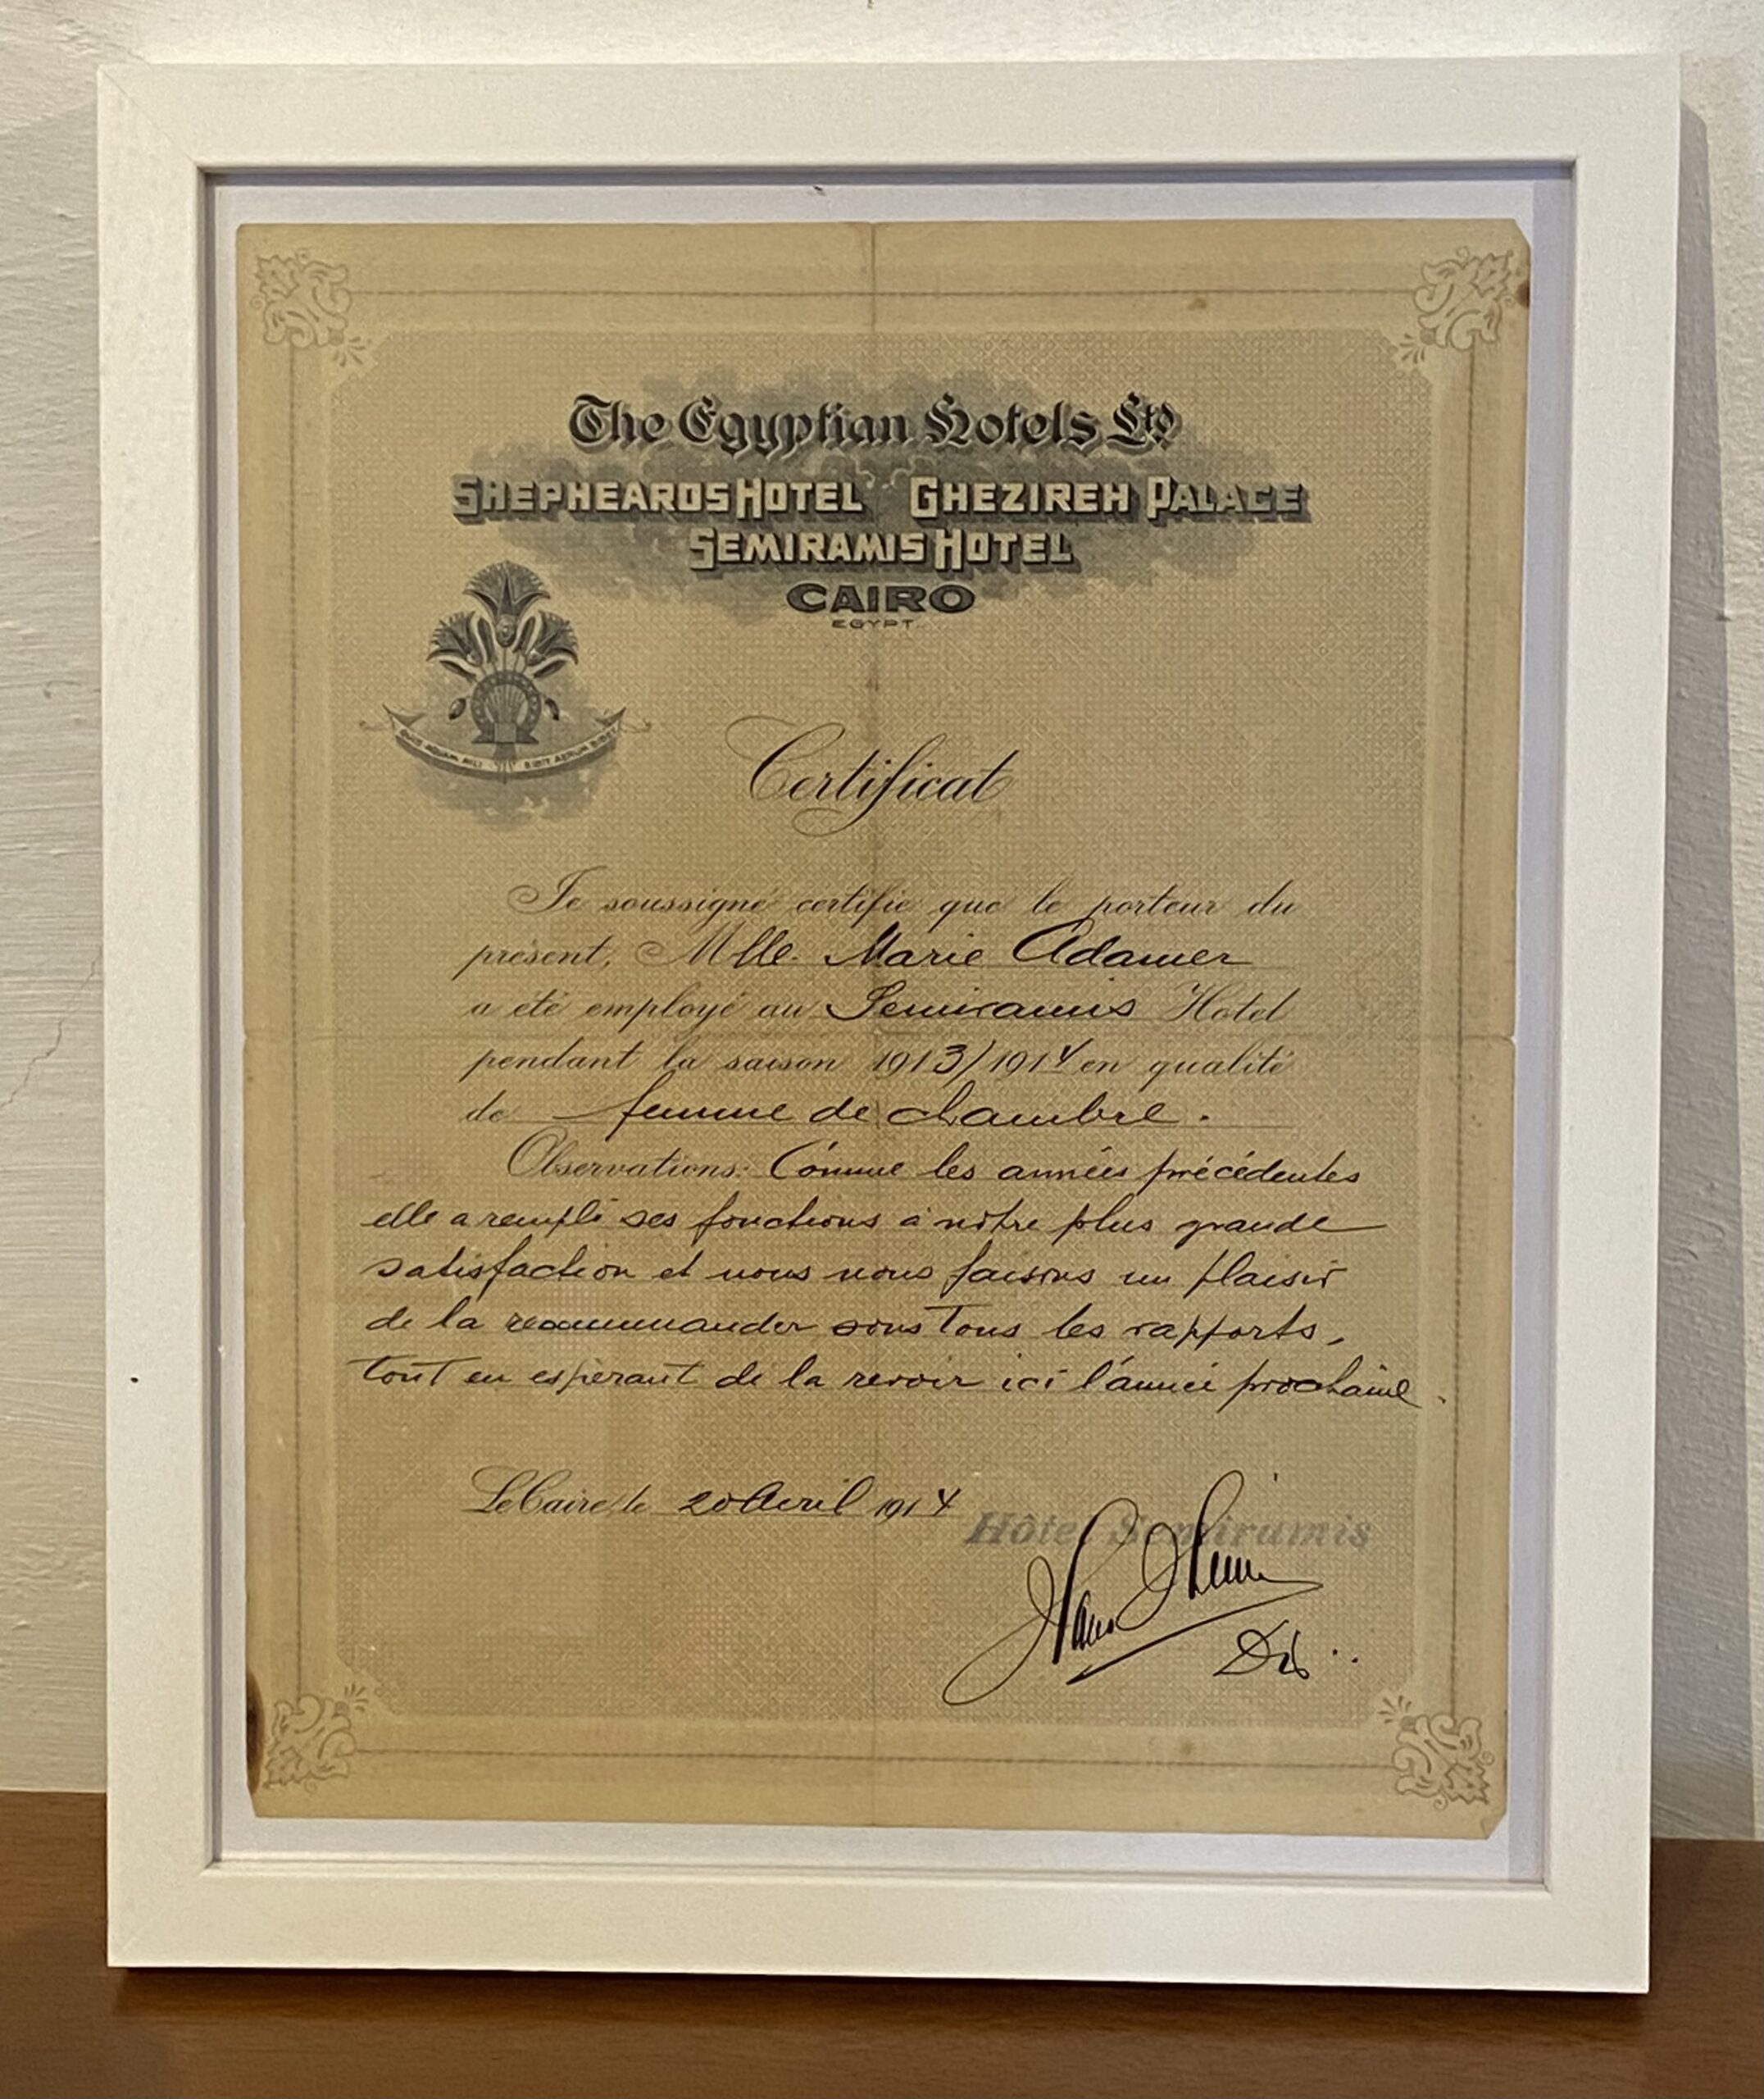 The Egyptian Hotels Ltd
SHEPHEARDS HOTEL GHEZIREH PALACE
SEMIRAMIS HOTEL
CAIRO
EGYPT.
QUIS AQUAM NILI BIBIT AERUM BIBET
Certificat
Je soussigné certifie que le porteur du
présent, Mlle. Marie Adamer
a été employé au Semiramis Hotel
pendant la saison 1913/1914 en qualité
de femme de chambre.
Observations: Comme les années précédentes
elle a rempli ses fonctions à nôtre plus grande
satisfaction et nous nous faisons un plaisir
de la recommander sous tous les rapports,
tout en espérant de la revoir ici l'année prochaine.
Le Caire, le 20 Avril 1914
Hôtel Semiramis